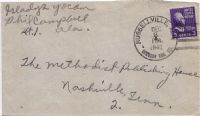 Gladys Yocam
Phil Campbell
Rt 1. Ala.
RUSSELLVILLE
DEC
The Methodist Publishing House
Nashville, Tenn.
2.